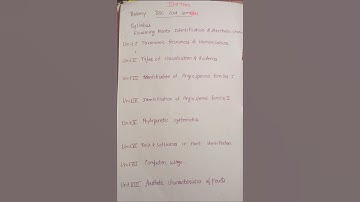 Botany DSC 2nd semester
Syllabus
Flowering Plants Identification & Aesthetic characteristics
Unit I Taxonomic Resources & Nomenclature
Unit II Types of classification & Evidences
Unit III Identification of Angiosperms family I
Unit IV Identification of Angiosperms family II
Unit V Phylogenetic systematics
Unit VI Tools & softwares in Plant identification
Unit VII
Unit VIII Aesthetic characteristics of plants